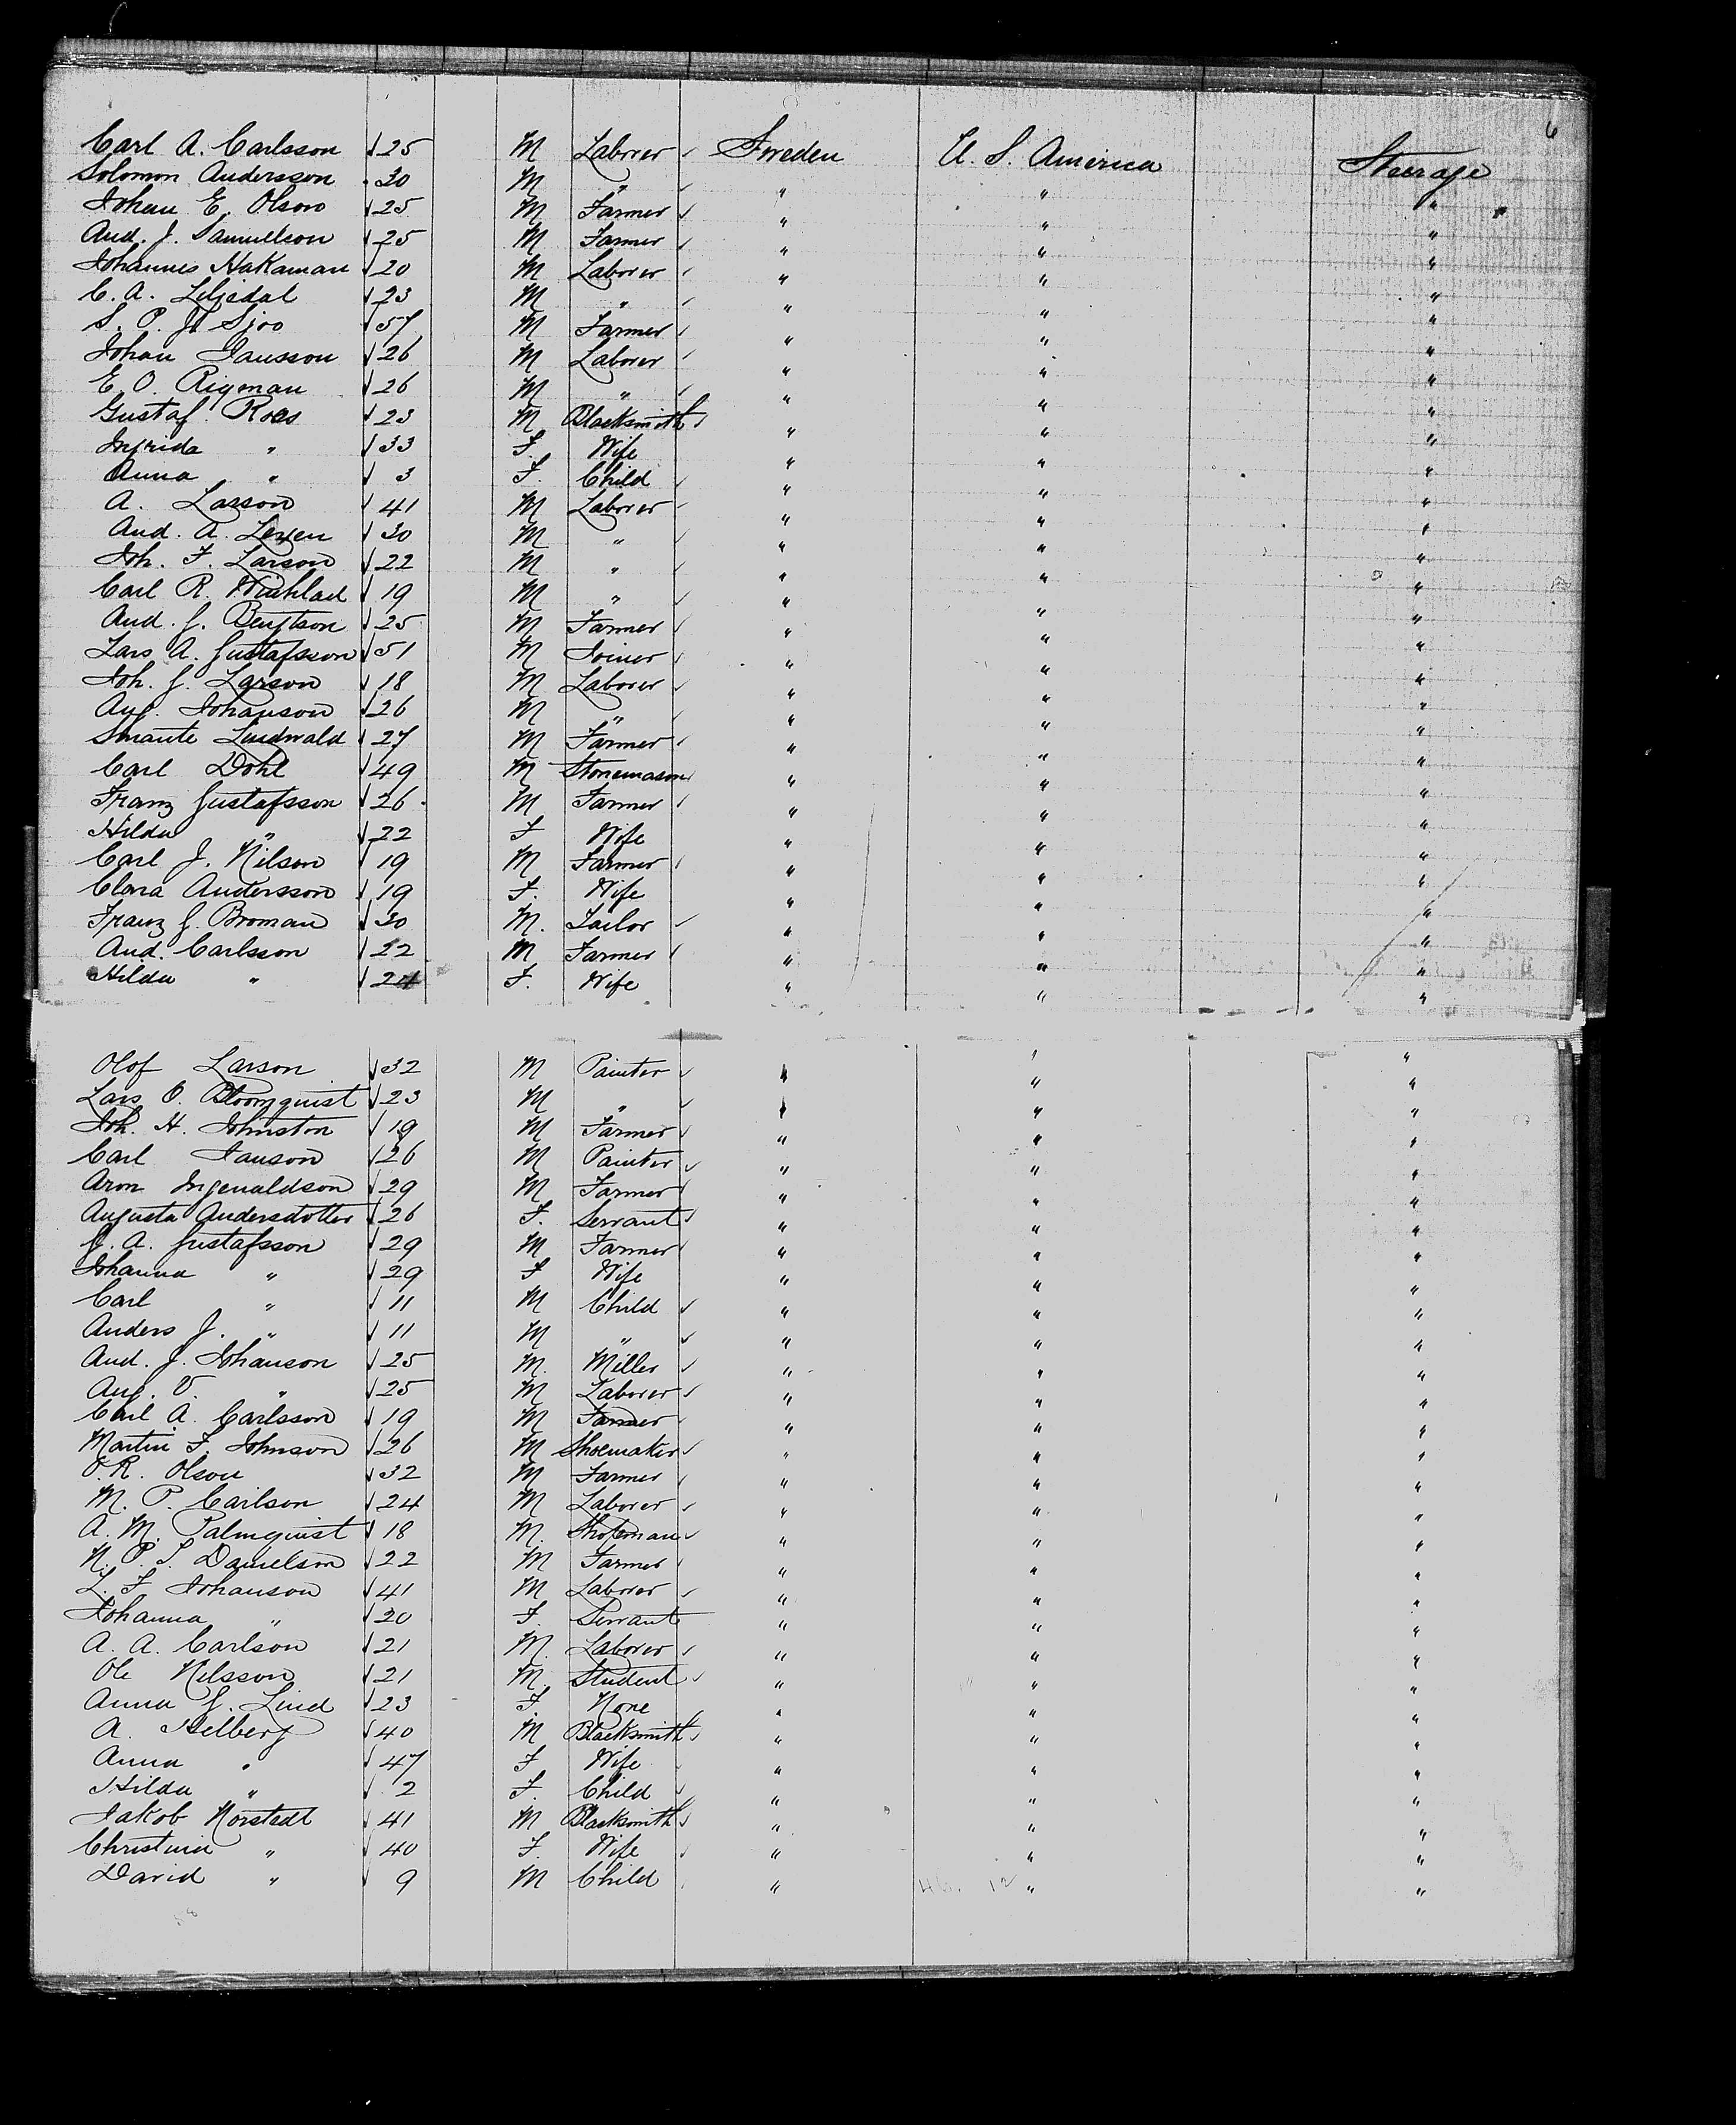 6
Carl A. Carlsson 25 M Laborer Sweden U. S. America Steerage
Solomon Andersson 30 M " " " "
Johan E. Olson 25 M Farmer " " "
And. J. Samuelson 25 M Farmer " " "
Johannes Hakaman 20 M Laborer " " "
C. A. Liljedal 23 M " " " "
S. P. Sjoo 57 M Farmer " " "
Johan Jansson 26 M Laborer " " "
E. O. Rigman 26 M " " " "
Gustaf Roos 23 M Blacksmith " " "
Ingrida " 33 F. Wife " " "
Anna " 3 F. Child " " "
A. Larson 41 M Laborer " " "
And. A. 30 M " " " "
Joh. F. Larson 22 M " " " "
Carl R. 19 M " " " "
And. J. Bengtson 25 M Farmer " " "
Lars A. Gustafsson 51 M Joiner " " "
Joh. J. Larson 18 M Laborer " " "
Aug. Johanson 26 M " " " "
Smante Lindwald 27 M Farmer " " "
Carl Dohl 49 M Stonemason " " "
Franz Gustafsson 26 M Farmer " " "
Hilda " 22 F Wife " " "
Carl J. Nilson 19 M Farmer " " "
Clara Andersson 19 F. Wife " " "
Franz J. Broman 30 M. Tailor " " "
And. Carlsson 22 M Farmer " " "
Hilda " 24 F. Wife " " "
Olof Larson 32 M Painter " " "
Lars O. Bloomquist 23 M " " " "
Joh. H. Johnston 19 M Farmer " " "
Carl Janson 26 M Painter " " "
Aron Ingenaldson 29 M Farmer " " "
Augusta Andersdotter 26 F. Servant " " "
J. A. Gustafsson 29 M Farmer " " "
Johanna " 29 F Wife " " "
Carl " 11 M Child " " "
Anders J. " 11 M " " " "
And. J. Johanson 25 M. Miller " " "
Aug. V. " 25 M Laborer " " "
Carl A. Carlsson 19 M Farmer " " "
Martin F. Johnson 26 M Shoemaker " " "
O. R. Olson 32 M Farmer " " "
M. P. Carlson 24 M Laborer " " "
A. M. Palmquist 18 M. " " "
N. P. S. Danielson 22 M Farmer " " "
L. F. Johanson 41 M Laborer " " "
Johanna " 20 F. Servant " " "
A. A. Carlson 21 M. Laborer " " "
Ole Nilsson 21 M. Student " " "
Anna J. Lind 23 F. None " " "
A. Helberg 40 M Blacksmith " " "
Anna " 47 F Wife " " "
Hilda " 2 F. Child " " "
Jakob Norstedt 41 M Blacksmith " " "
Christina " 40 F. Wife " " "
David " 9 M Child " " "